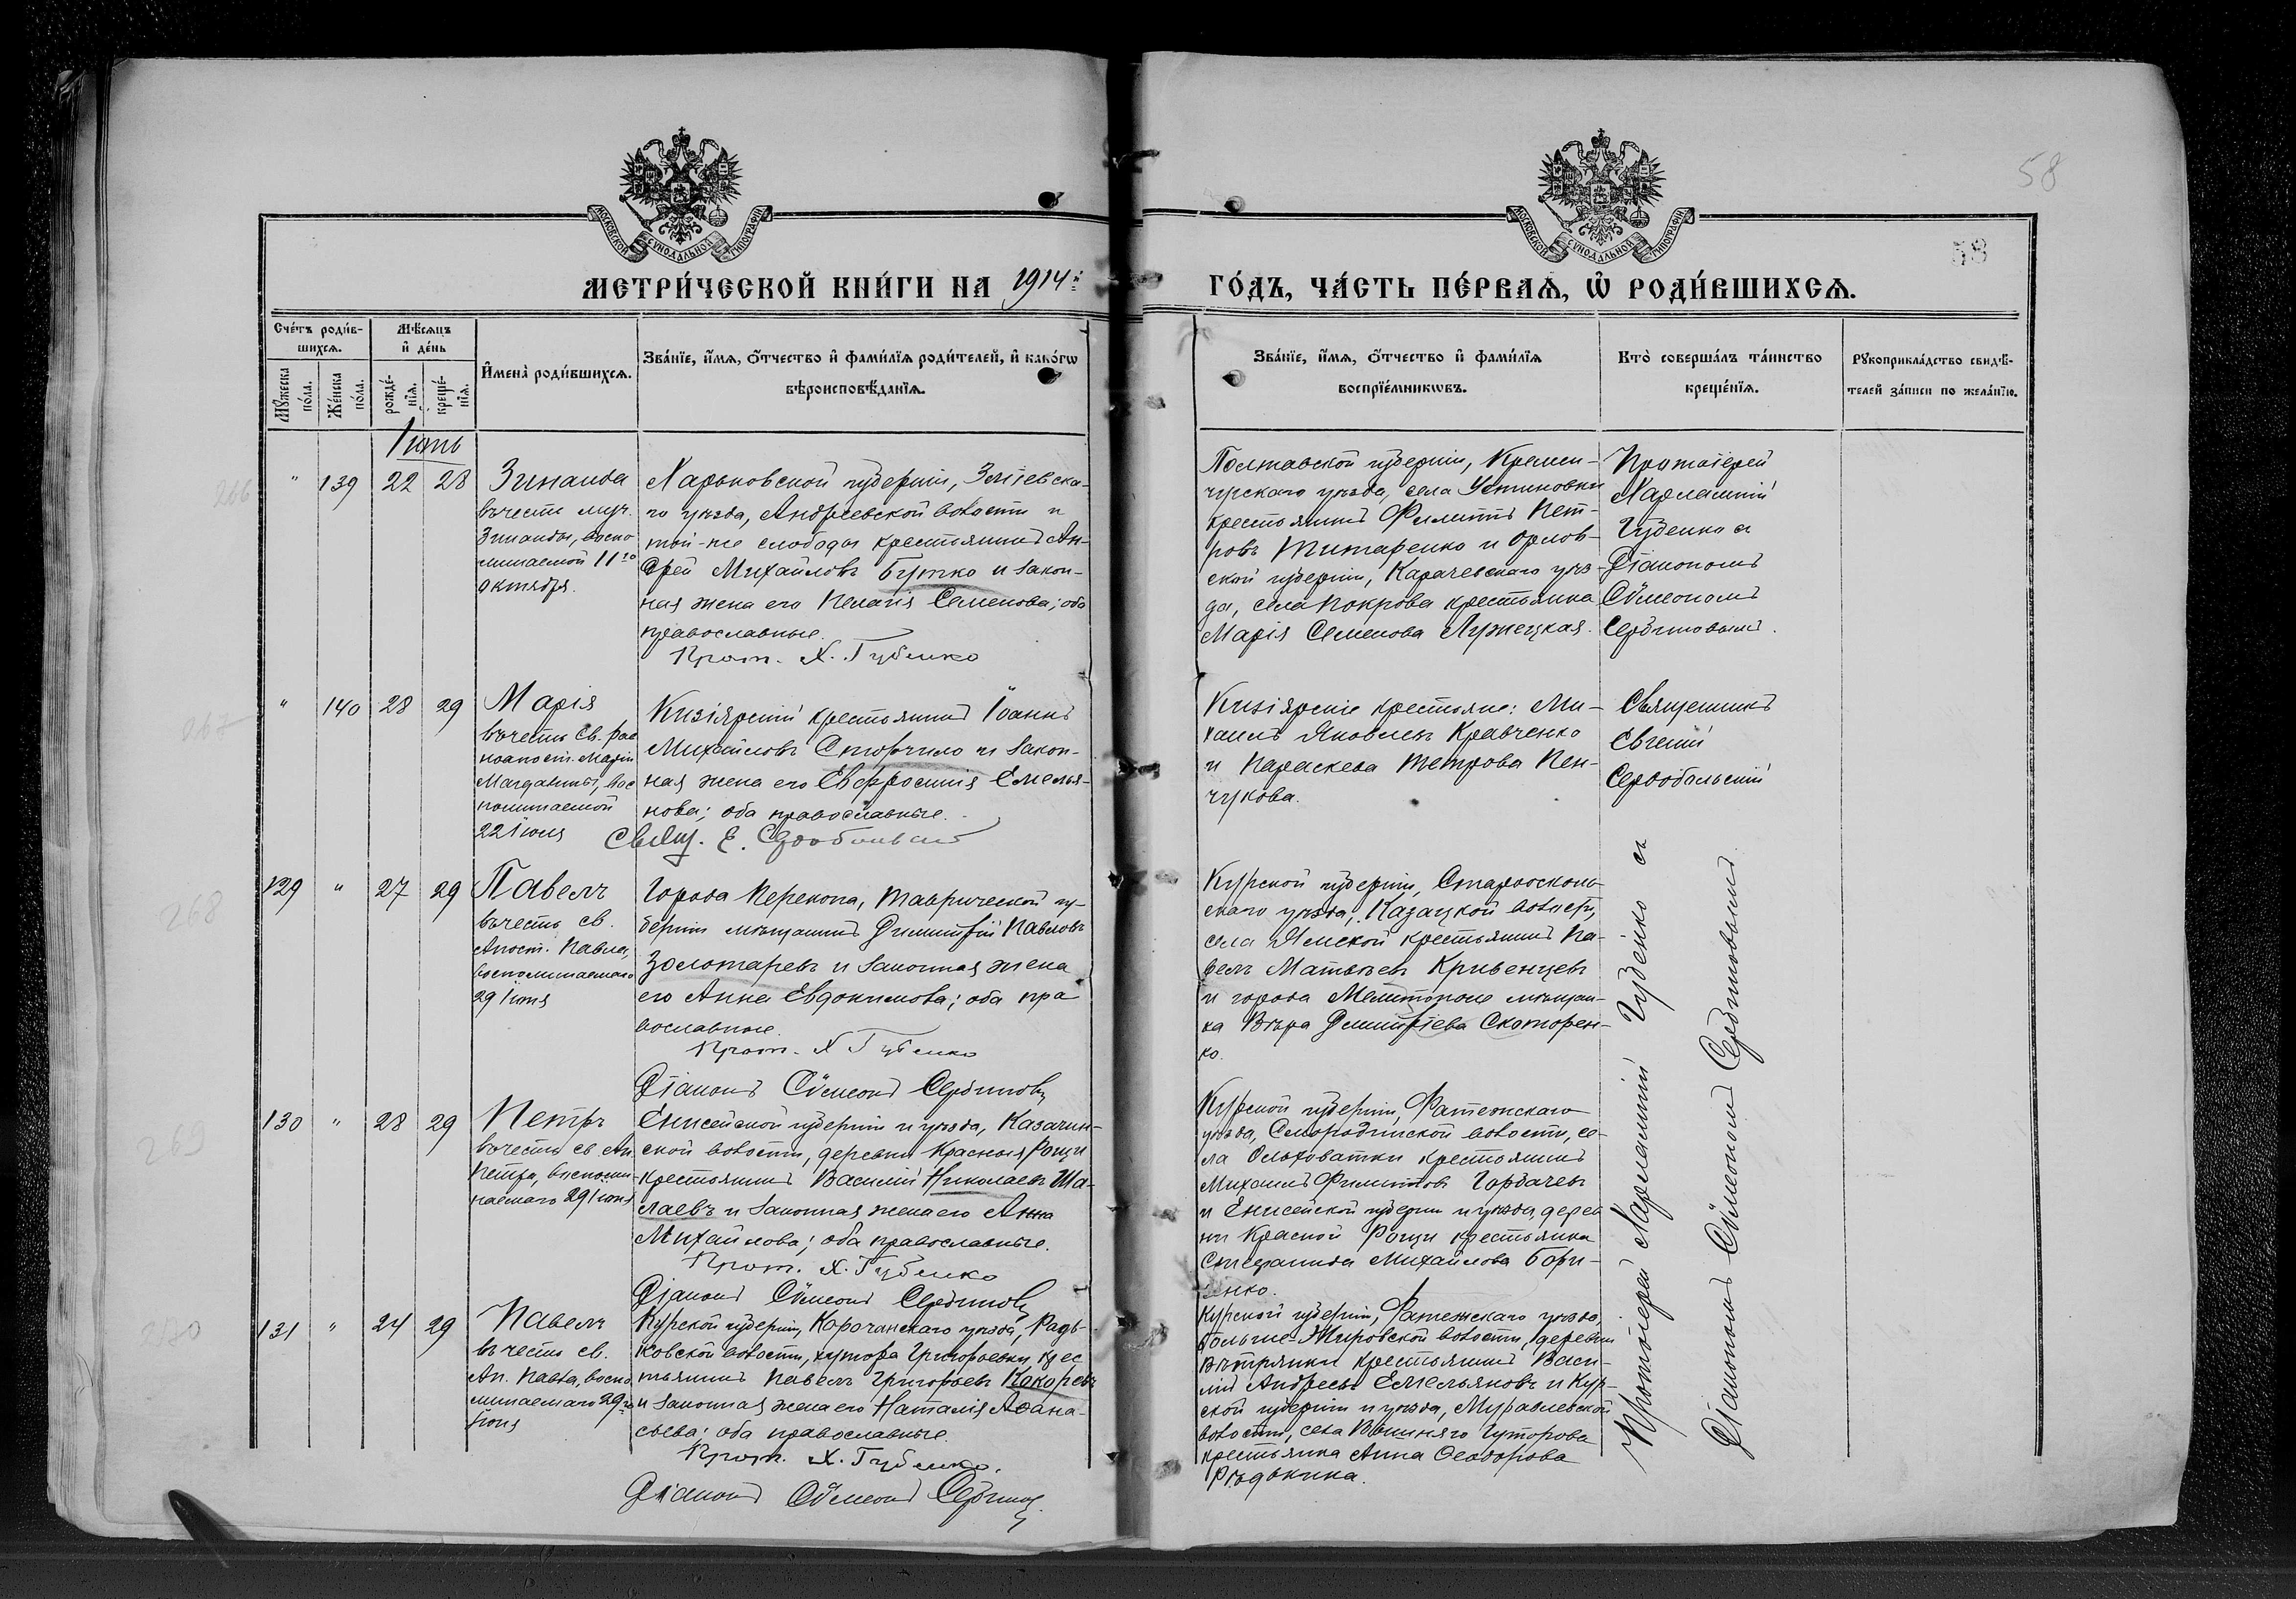 58
МОСКОВСКОЙ СУНОДАЛЬНОЙ ТИПОГРАФІИ
МОСКОВСКОЙ СУНОДАЛЬНОЙ ТИПОГРАФІИ
58
МЕТРИ́ЧЕСКОЙ КНИ́ГИ НА 1914й
ГО́ДЪ, ЧА́СТЬ ПЕ́РВАѦ, Ѽ РОДИ́ВШИХСѦ.
Сче́тъ роди́в-
шихсѧ.
Мѣ́сѧцъ
и҆ де́нь
Мꙋ́жеска по́ла.
Же́нска по́ла.
рожде́-
нїѧ.
креще́-
нїѧ.
И҆мена̀ роди́вшихсѧ.
Зва́нїе, и҆́мѧ, ѻ҆́тчество и҆ фами́лїѧ роди́телей, и҆ како́гѡ
вѣроисповѣ́данїѧ.
Зва́нїе, и҆́мѧ, ѻ҆́тчество и҆ фами́лїѧ
воспрїе́мникѡвъ.
Кто̀ соверша́лъ та́инство
креще́нїѧ.
Рꙋкоприкла́дство свидѣ́-
телей за́писи по жела́нїю.
Іюнь
266
" 139 22 28
Зинаида
въ честь муч.
Зинаиды, воспо
минаемой 11го
октября.
Харьковской губерніи, Зміевска-
го уѣзда, Андреевской волости и
той-же слободы крестьянинъ Ан-
дрей Михайловъ Бутко и закон-
ная жена его Пелагія Семенова; оба
православные.
Прот. Х. Губенко
Полтавской губерніи, Кремен-
чугскаго уѣзда, села Устиновки
крестьянинъ Филиппъ Пет-
ровъ Титаренко и Орлов-
ской губерніи, Карачевскаго уѣз-
да, села Покрова крестьянка
Марія Семенова Лужецкая.
Протоіерей
Харлампій
Губенко съ
Діакономъ
Сѵмеономъ
Сербиновымъ.
267
" 140 28 29
Марія
въ честь св. рав
ноапост. Маріи
Магдалины, вос
поминаемой
22 Іюля
Кизіярскій крестьянинъ Іоаннъ
Михайловъ и закон-
ная жена его Евфросинія Емелья-
нова; оба православные.
Свящ. Е.
Кизіярскіе крестьяне: Ми-
хаилъ Яковлевъ Кравченко
и Параскева Петрова Пен-
чукова.
Священникъ
Евгеній
268
129 " 27 29
Павелъ
въ честь св.
Апост. Павла,
воспоминаемаго
29 Іюня
Города Перекопа, Таврической гу-
берніи мѣщанинъ Димитрій Павловъ
Золотаревъ и законная жена
его Анна Евдокимова; оба пра
вославные.
Прот. Х Губенко
Діаконъ Сѵмеонъ Сербиновъ
Курской губерніи, Старооскольс-
скаго уѣзда, Казацкой волости,
села Ямской крестьянинъ Па-
велъ Матвѣевъ Кривенцевъ
и города Мелитополе мѣщан-
ка Вѣра Димитріева Скоторен-
ко.
269
130 " 28 29
Петръ
въ честь св. Ап.
Петра, воспоми-
наемаго 29 Іюня
Енисейской губерніи и уѣзда, Казачин-
ской волости, деревни Красныя Рощи
крестьянинъ Василій Николаевъ Ша-
лаевъ и законная жена его Анна
Михайлова; оба православные.
Прот. Х. Губенко
Діаконъ Сѵмеонъ Сербиновъ
Курской губерніи, Фатежскаго
уѣзда, Смородинской волости, се-
ла Ольховатки крестьянинъ
Михаилъ Филипповъ Горбачевъ
и Енисейской губерніи и уѣзда, дерев
ни Красной Рощи крестьянка
Михайлова Бори-
сенко.
270
131 " 24 29
Павелъ
въ честь св.
Ап. Павла, воспо
минаемаго 29го
Іюня
Курской губерніи, Корочанскаго уѣзда, Радь-
ковской волости, хутора Григорьевки, крес
тьянинъ Павелъ Григорьевъ Кокоревъ
и законная жена его Наталія Аѳана-
сьева; оба православные.
Прот. Х. Губенко.
Діаконъ Сѵмеонъ Сербиновъ
Курской губерніи, Фатежскаго уѣзда,
Больше-Жировской волости, деревни
Вѣтрянки крестьянинъ Васи-
лій Андреевъ Емельяновъ и Кур-
ской губерніи и уѣзда, Муравлевской
волости, села Вышняго Гуторова
крестьянка Анна Ѳеодорова
Рѣдькина.
Протоіерей Харлампій Губенко съ
Діакономъ Сѵмеономъ Сербиновымъ.